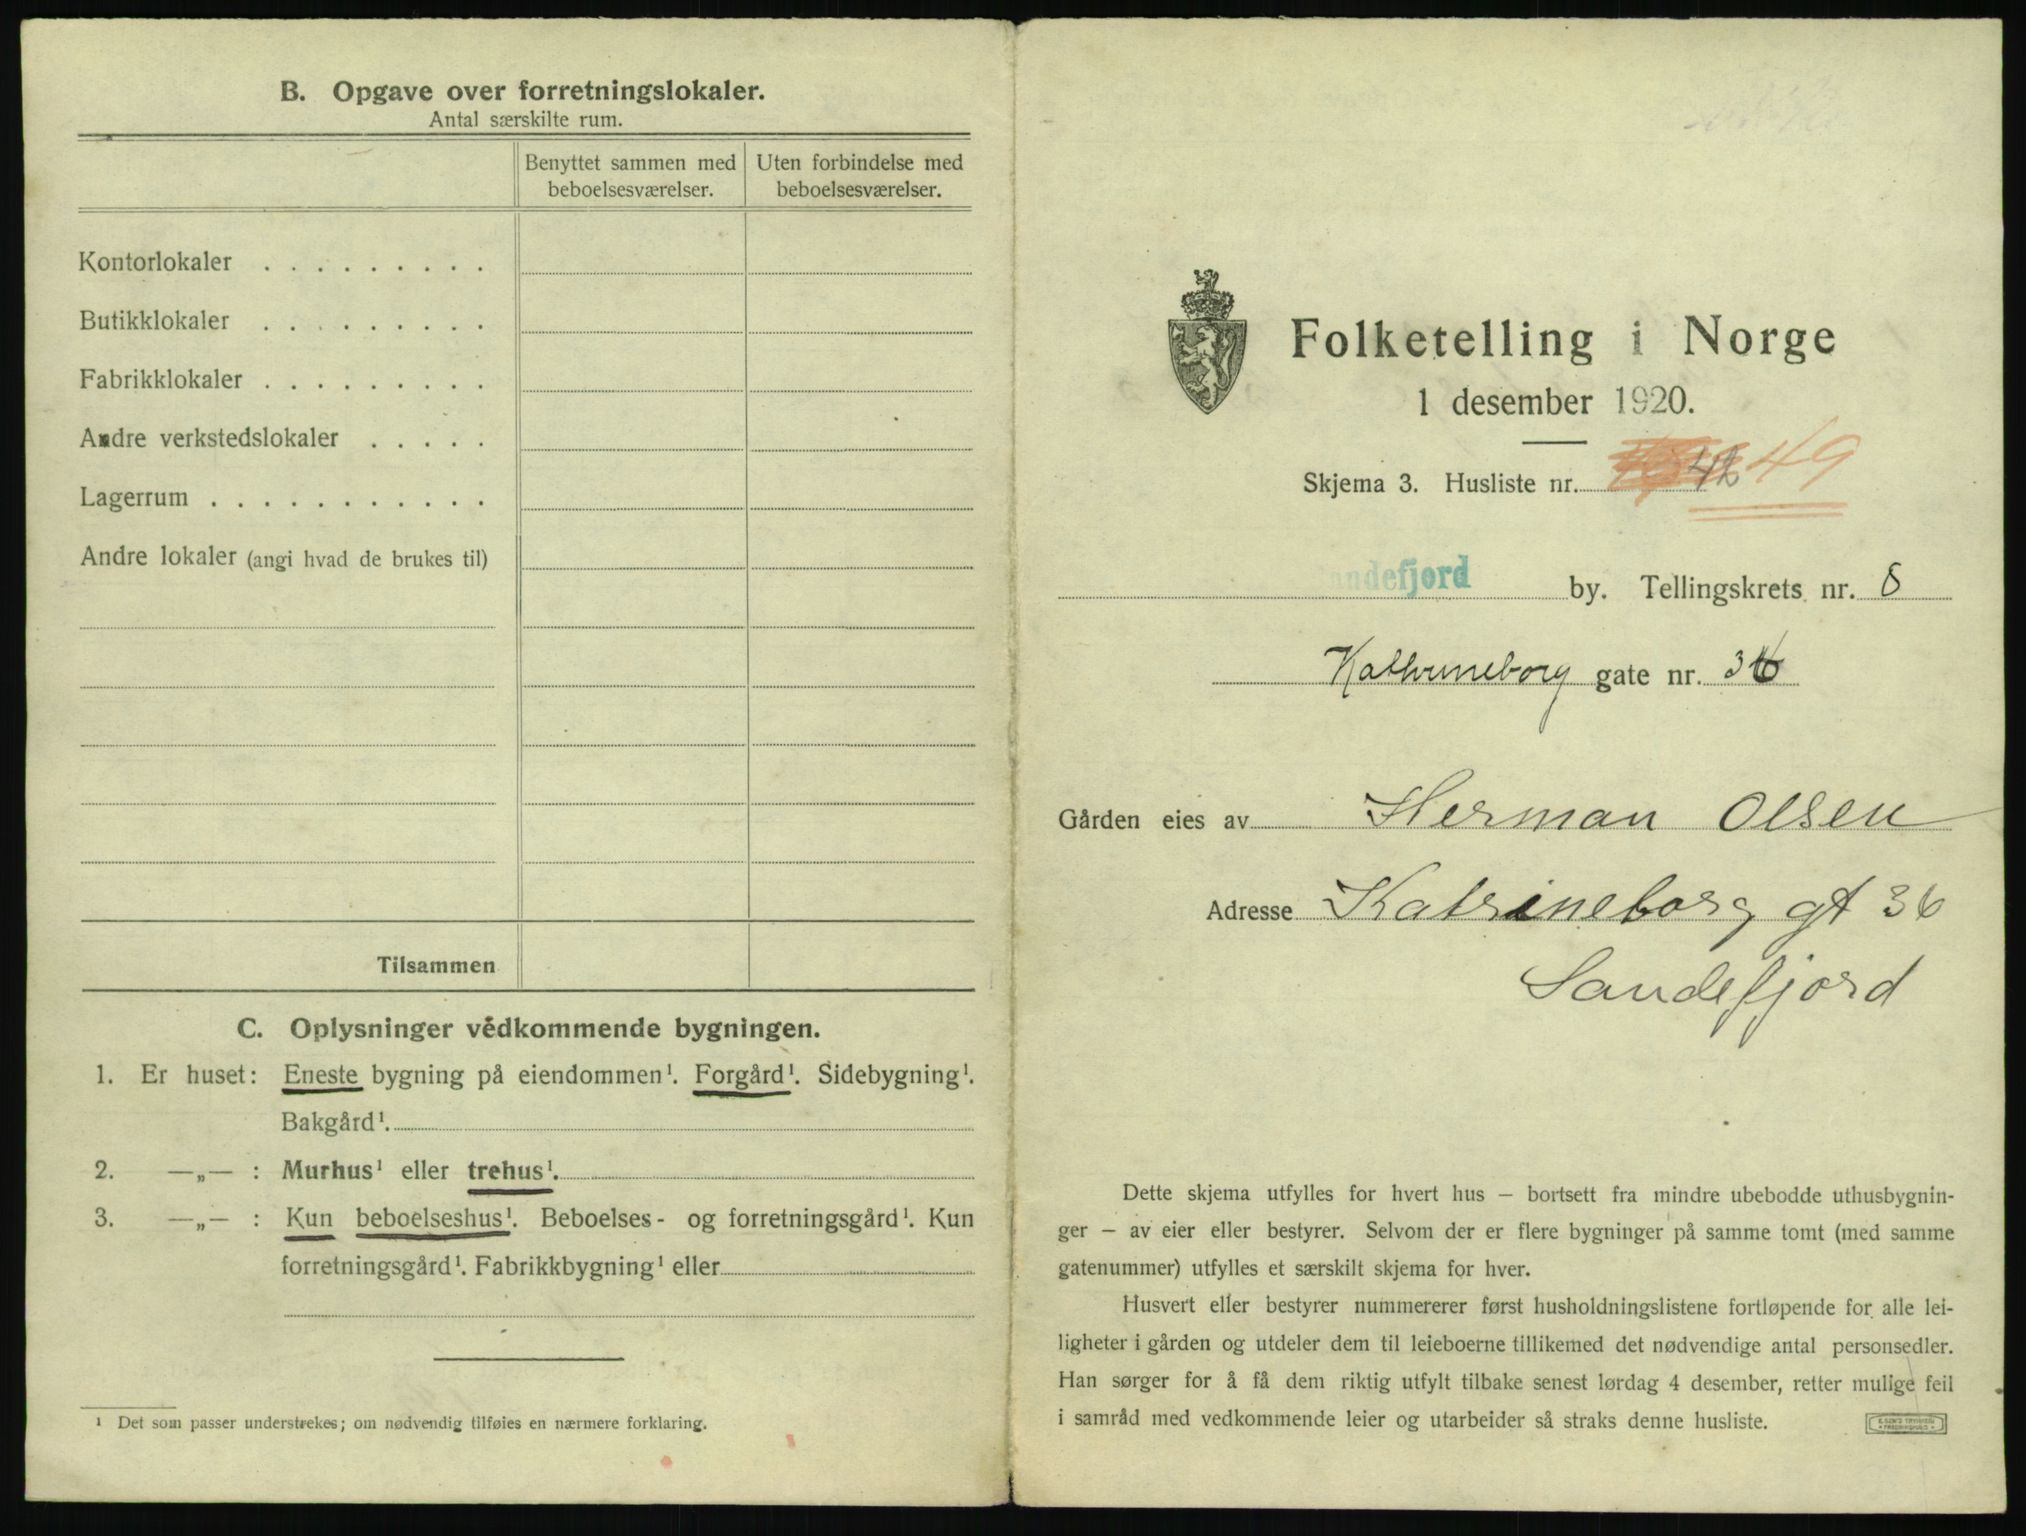 B. Opgave over forretningslokaler.
Antal særskilte rum.
Benyttet sammen med beboelsesværelser.
Uten forbindelse med beboelsesværelser.
Kontorlokaler . . . . . . . . .
Butikklokaler . . . . . . . . .
Fabrikklokaler . . . . . . . . .
Andre verkstedslokaler . . . . .
Lagerrum . . . . . . . . . . .
Andre lokaler (angi hvad de brukes til)
Tilsammen
C. Oplysninger vedkommende bygningen.
1. Er huset: Eneste bygning på eiendommen¹. Forgård¹. Sidebygning¹.
Bakgård¹.
2. —„— : Murhus¹ eller trehus¹.
3. —„— : Kun beboelseshus¹. Beboelses- og forretningsgård¹. Kun
forretningsgård¹. Fabrikkbygning¹ eller
¹ Det som passer understrekes; om nødvendig tilføies en nærmere forklaring.
Folketelling i Norge
1 desember 1920.
Skjema 3. Husliste nr. 49
andefjord by. Tellingskrets nr. 8
Kathrineborg gate nr. 36
Gården eies av Herman Olsen
Adresse Katrineborg gt 36
Sandefjord
Dette skjema utfylles for hvert hus – bortsett fra mindre ubebodde uthusbygnin-
ger – av eier eller bestyrer. Selvom der er flere bygninger på samme tomt (med samme
gatenummer) utfylles et særskilt skjema for hver.
Husvert eller bestyrer nummererer først husholdningslistene fortløpende for alle lei-
ligheter i gården og utdeler dem til leieboerne tillikemed det nødvendige antal personsedler.
Han sørger for å få dem riktig utfylt tilbake senest lørdag 4 desember, retter mulige feil
i samråd med vedkommende leier og utarbeider så straks denne husliste.